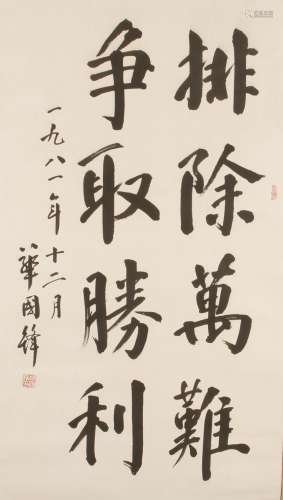 排除萬難
争取勝利
一九八一年十二月
華國鋒